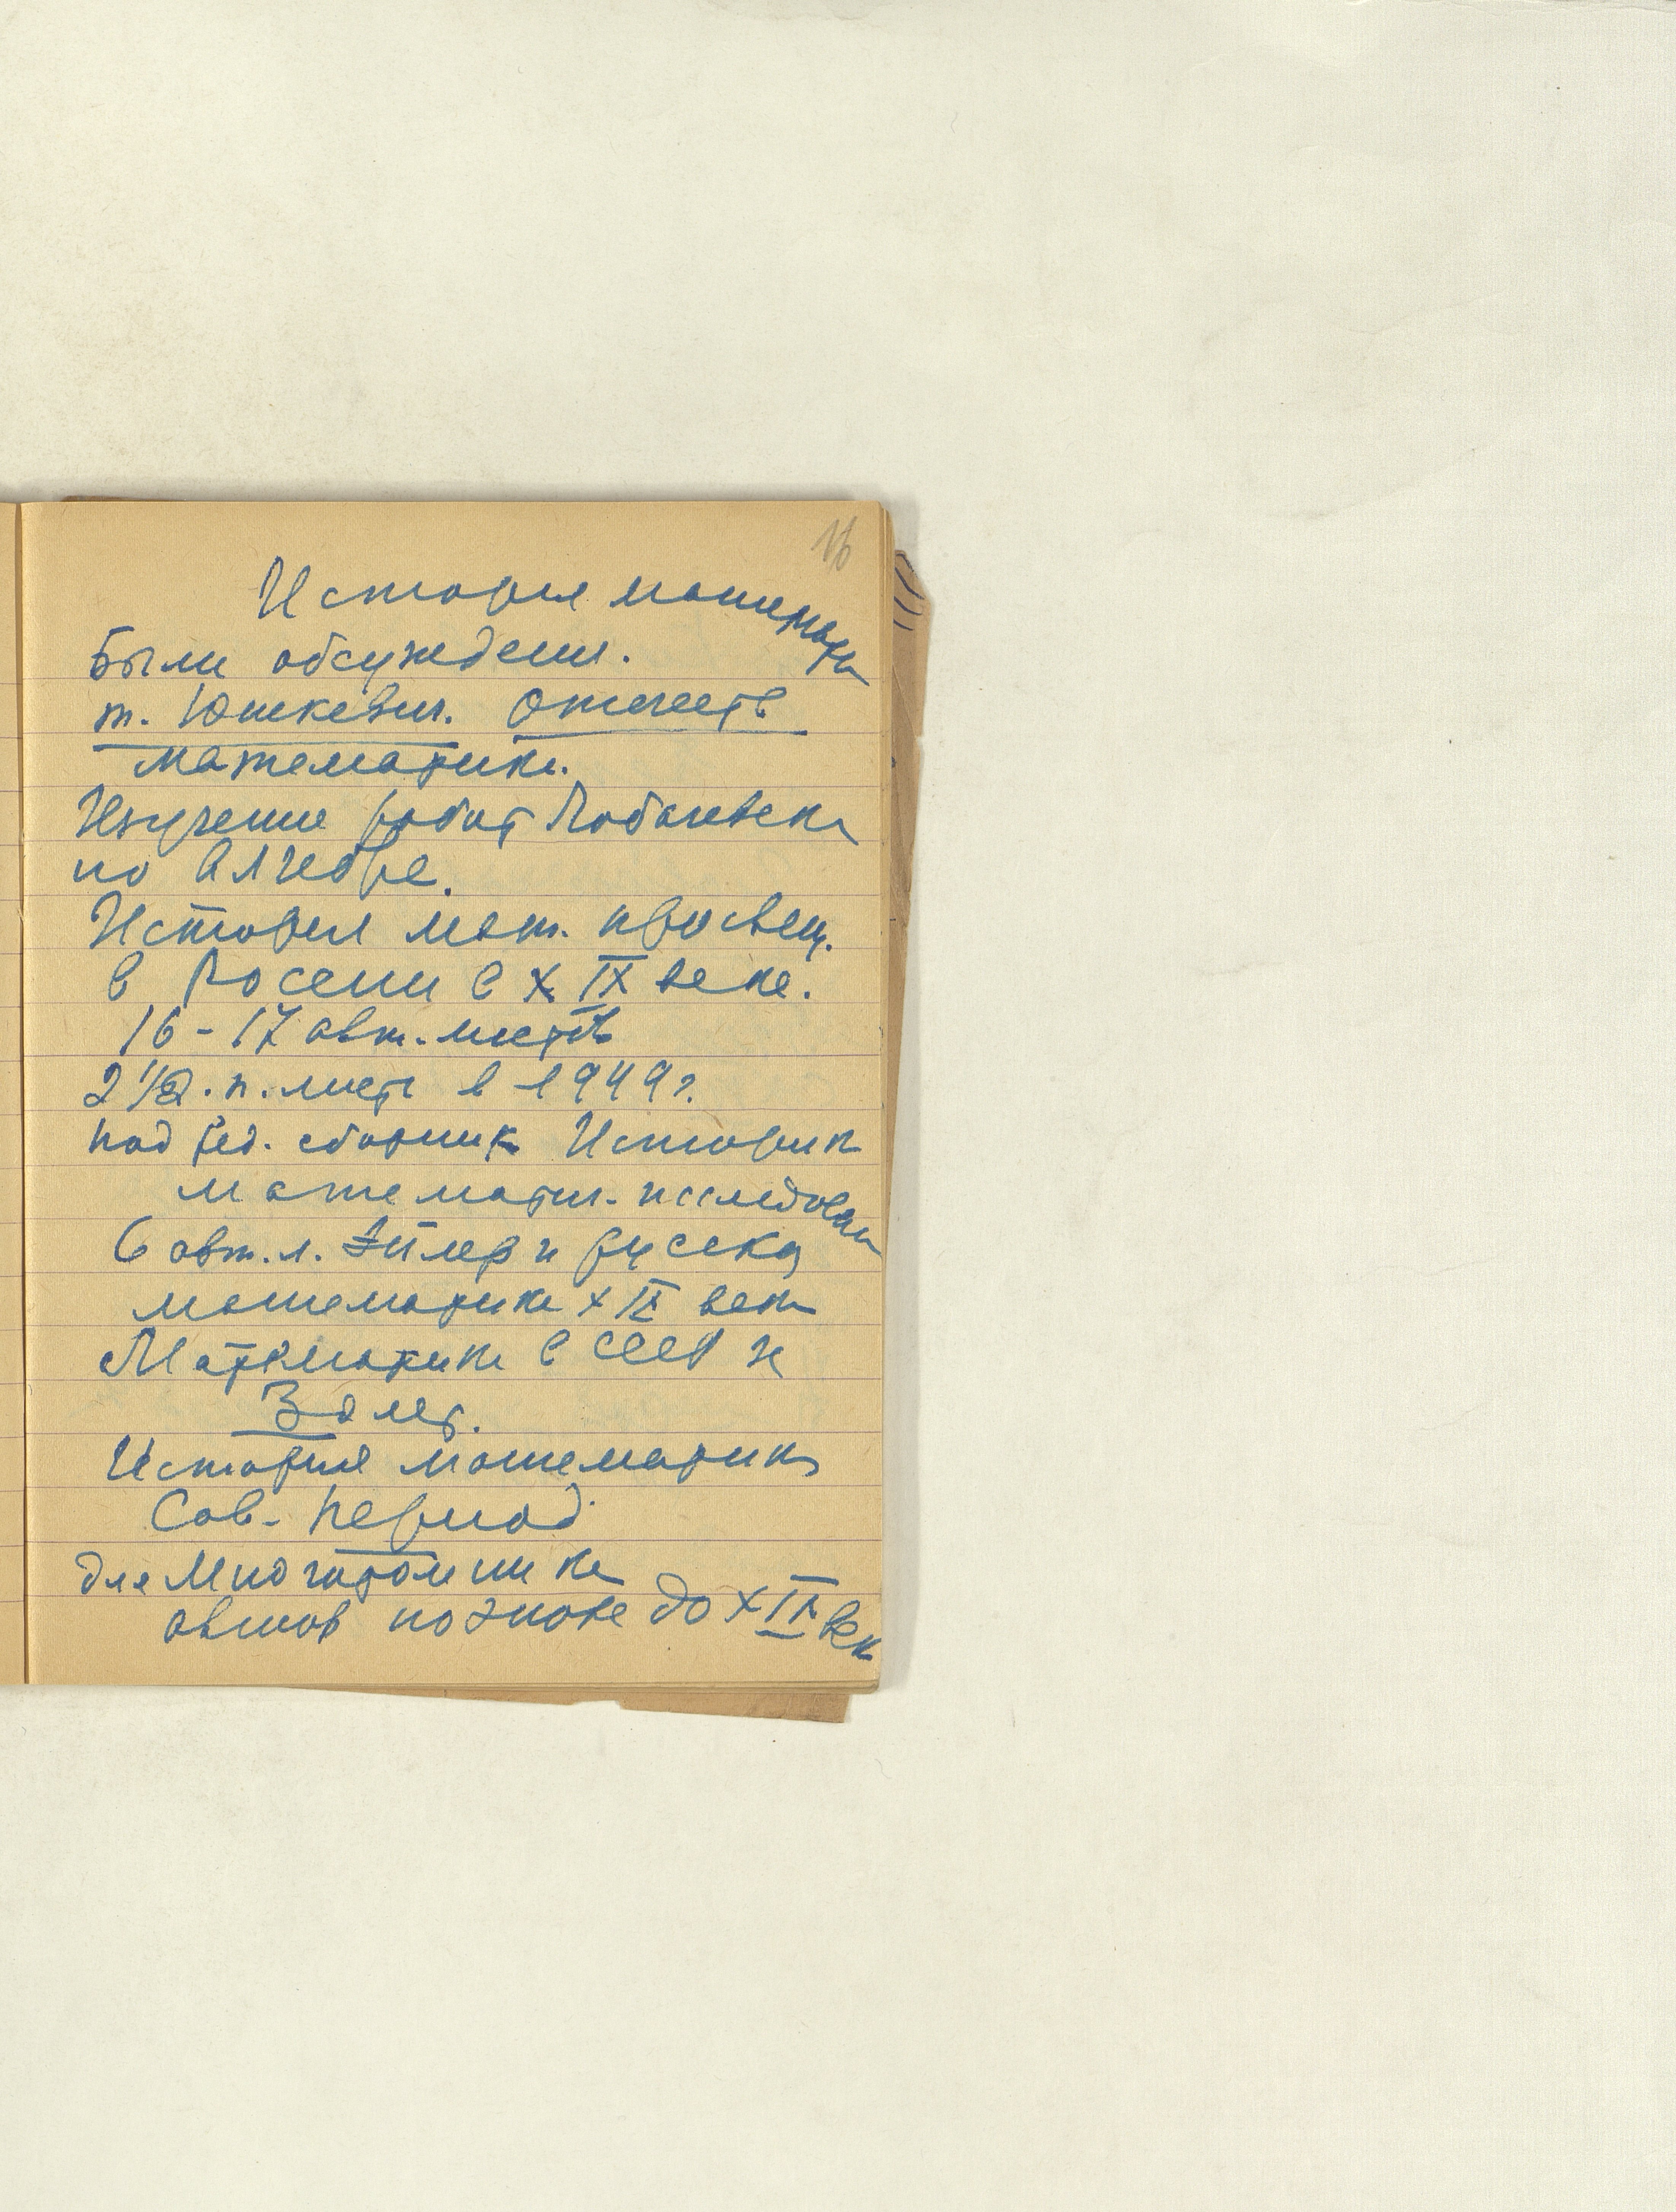 16
История математи
Были обсуждения.
т. Юшкевич. Отечеств
математика.
Изучение работ Лобачевск
по Алгебре.
История мат. просвещ.
в России в XIX веке.
16-17 авт. листов
2 1/2 . п. лист в 1949 г.
под ред. сборник Историк
математич. исследован
6 авт. л. Эйлер и русска
математика XIX век
Математика в СССР за
30 лет.
История математик
Сов. период
для Многотомника
авторов по эпохе до XIX век